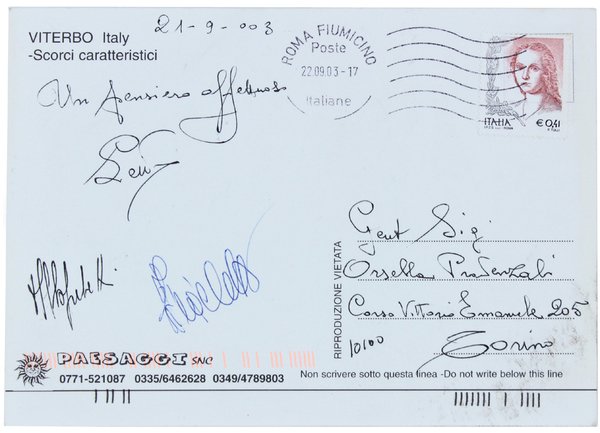 VITERBO Italy
-Scorci caratteristici
21-9-003
ROMA FIUMICINO
Poste
22.09.03-17
Italiane
ITALIA
€ 0,41
Un pensiero affettuoso
Gent Sig
Orsella Provenzali
Corso Vittorio Emanuele 205
10100 Torino
RIPRODUZIONE VIETATA
PAESAGGI SNC
0771-521087 0335/6462628 0349/4789803
Non scrivere sotto questa linea -Do not write below this line